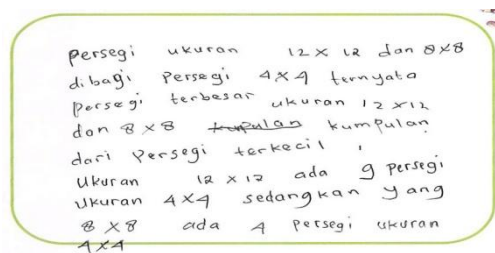 persegi ukuran 12 x 12 dan 8x8
dibagi persegi 4x4 ternyata
persegi terbesar ukuran 12 x12
dan 8x8 kumpulan kumpulan
dari persegi terkecil,
Ukuran 12 x 12 ada 9 persegi
Ukuran 4x4 sedangkan yang
8 x 8 ada 4 persegi ukuran
4x4